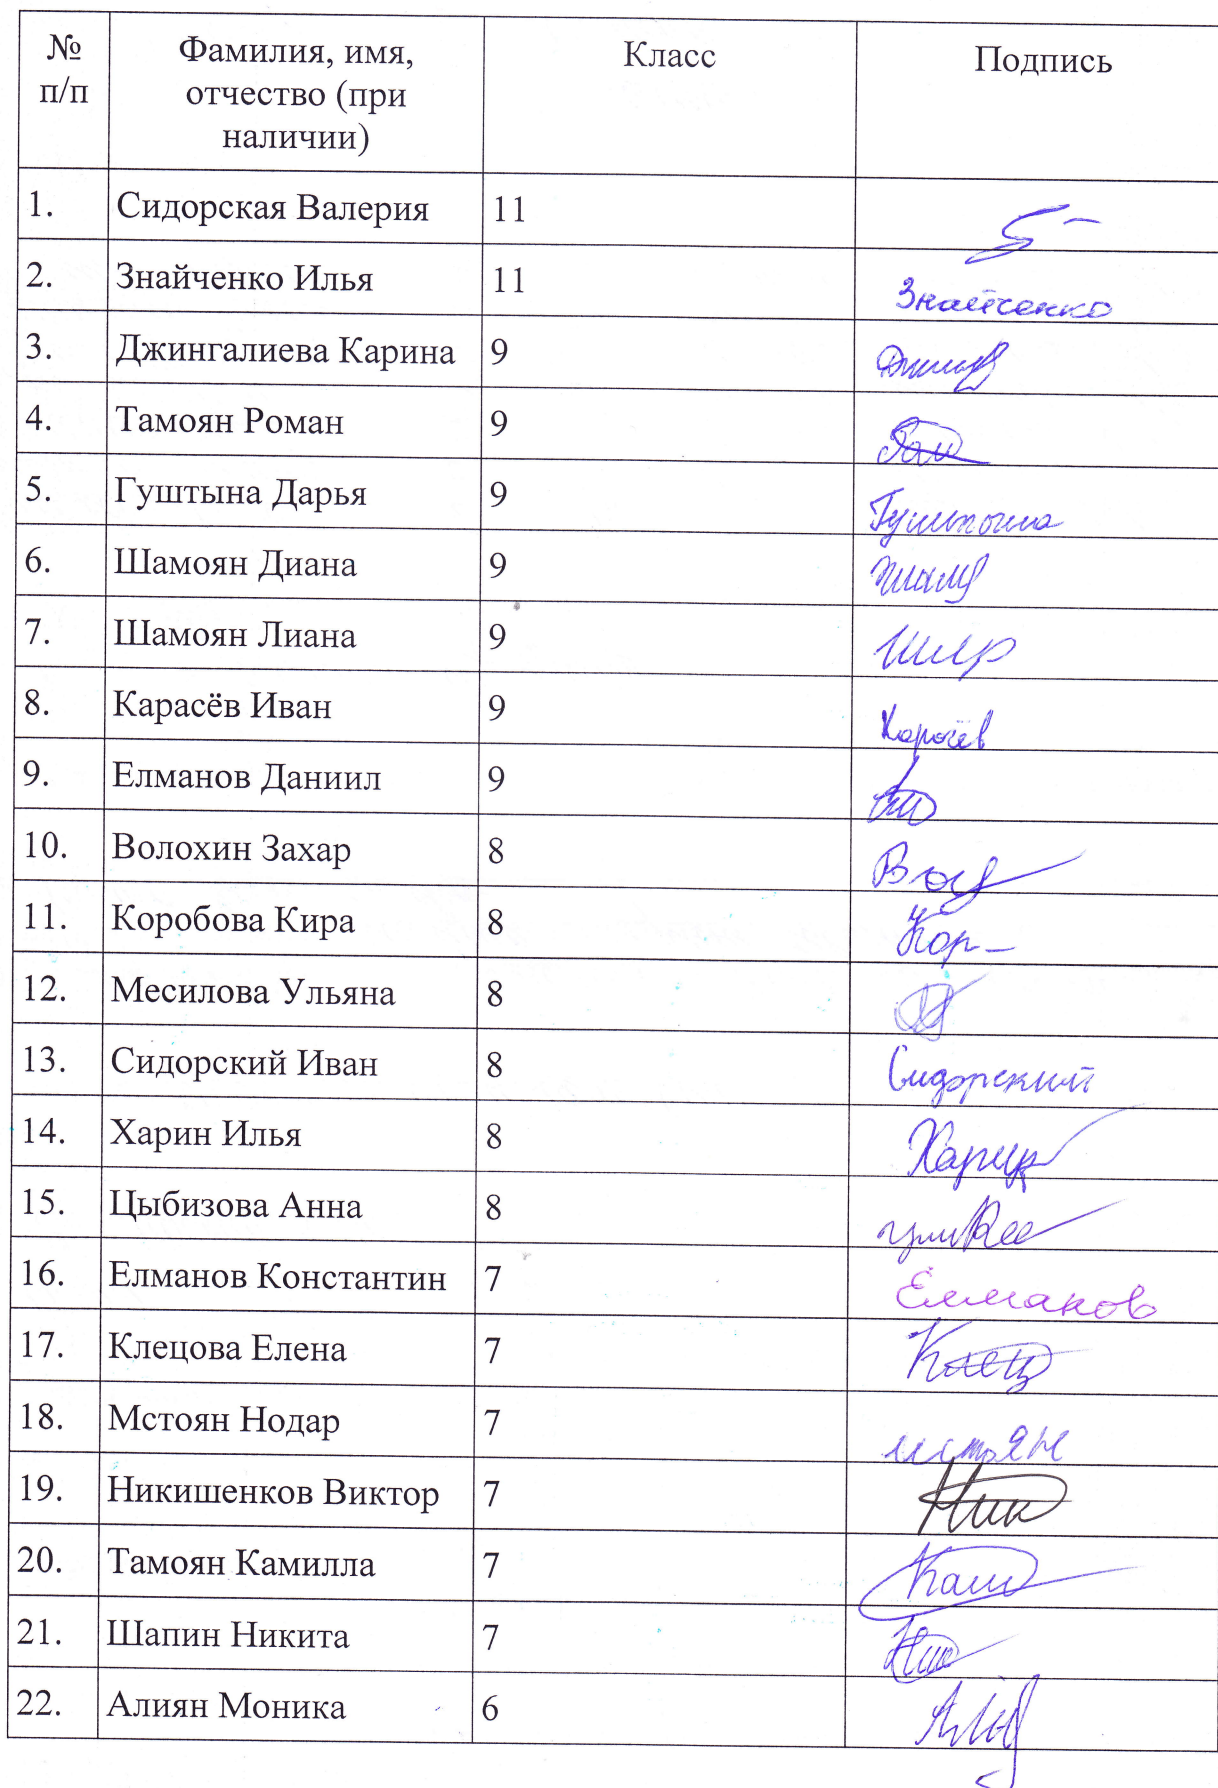 № п/п
Фамилия, имя, отчество (при наличии)
Класс
Подпись
1. Сидорская Валерия 11
2. Знайченко Илья 11 Знайченко
3. Джингалиева Карина 9
4. Тамоян Роман 9
5. Гуштына Дарья 9 Гуштына
6. Шамоян Диана 9
7. Шамоян Лиана 9
8. Карасёв Иван 9 Карасёв
9. Елманов Даниил 9
10. Волохин Захар 8
11. Коробова Кира 8 Кор
12. Месилова Ульяна 8
13. Сидорский Иван 8 Сидорский
14. Харин Илья 8 Харин
15. Цыбизова Анна 8
16. Елманов Константин 7 Елманов
17. Клецова Елена 7 Клец
18. Мстоян Нодар 7 мстоян
19. Никишенков Виктор 7 Ник
20. Тамоян Камилла 7 Кам
21. Шапин Никита 7
22. Алиян Моника 6